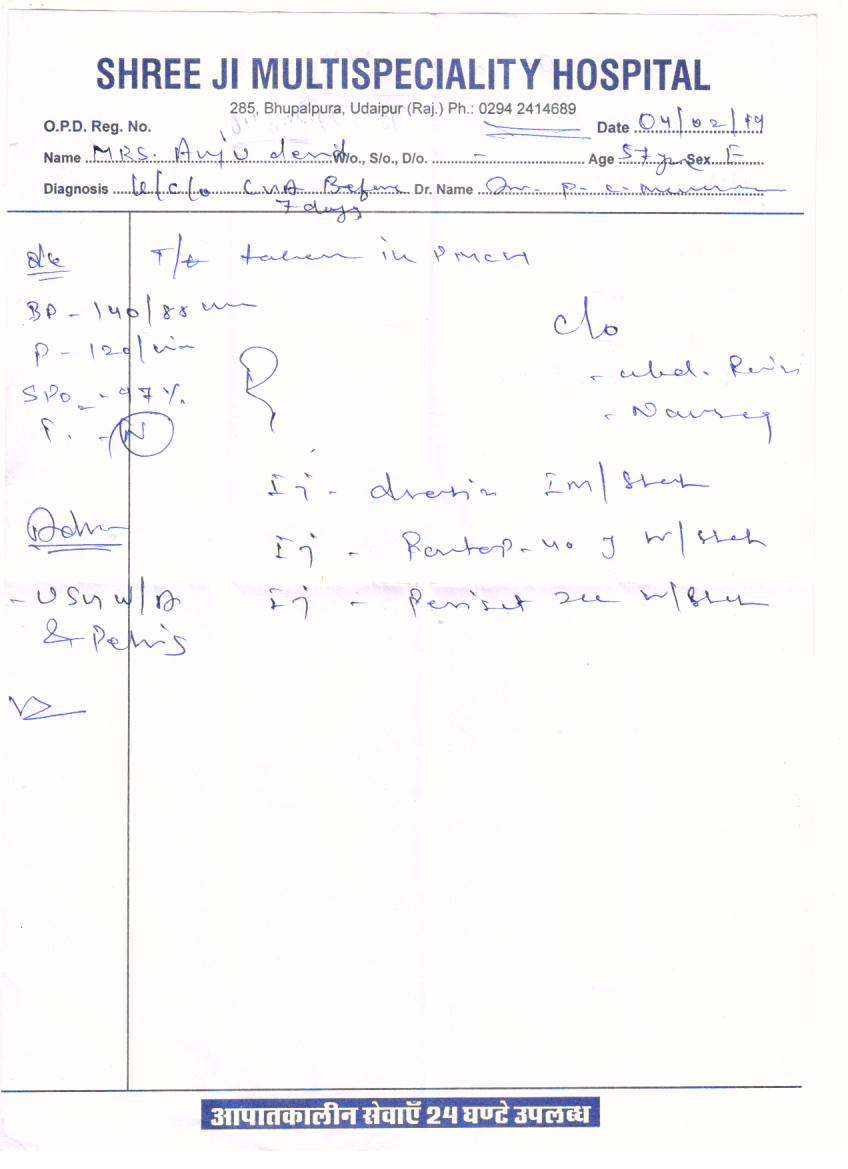 SHREE JI MULTISPECIALITY HOSPITAL
285, Bhupalpura, Udaipur (Raj.) Ph.: 0294 2414689
O.P.D. Reg. No. Date 04/02/19
Name MRS. Anju devi W/o., S/o., D/o. - Age 57 yr Sex F
Diagnosis K/C/O CVA Before Dr. Name Dr. P. C.
7 days
O/E T/t taken in PMCH
BP - 140/88
P - 120/min
SPO2 - 97%
T. - N
C/o
- abd. Pain
- Nausea
Inj - IM/Stat
Adm
Inj - Pantop - 40 IV/Stat
- USG W/A Inj - 2cc IV/Stat
& Pelvis
आपातकालीन सेवाएँ 24 घण्टे उपलब्ध